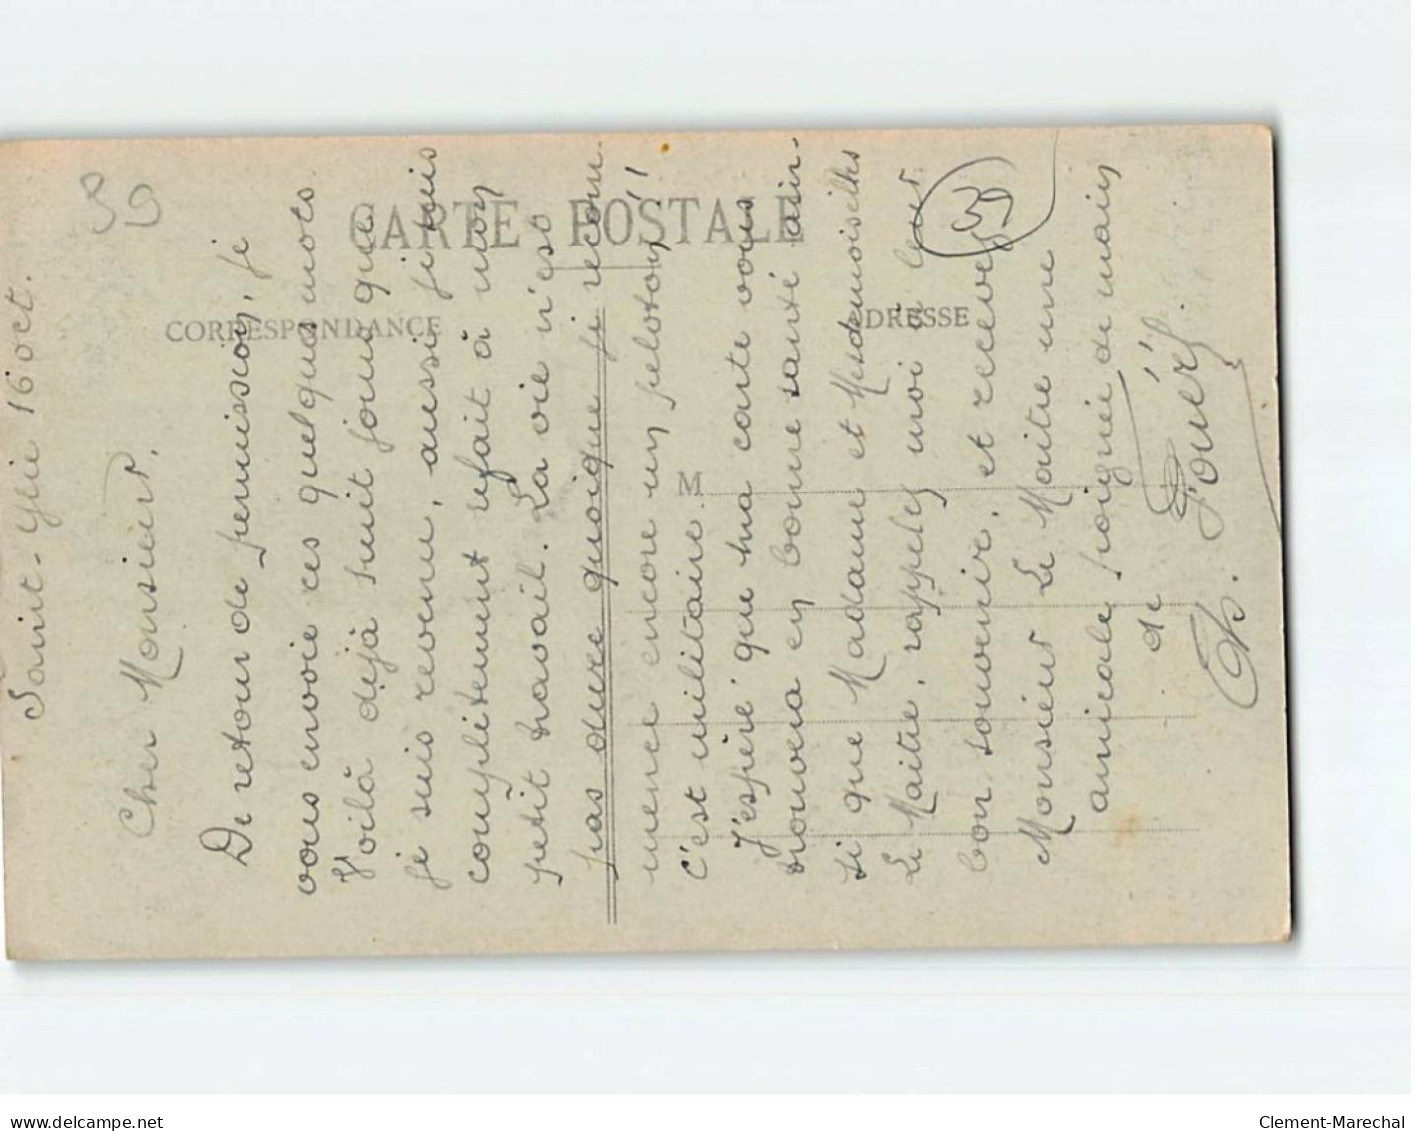 39
39
CARTE POSTALE
CORRESPONDANCE
ADRESSE
M
Saint-Ylie 16 oct.
Cher Monsieur.
De retour de permission, je
vous envoie ces quelques mots.
Voilà déjà huit jours que
je suis revenu, aussi je suis
complètement refait à mon
petit travail. La vie n'est
pas dure quoique je recom
mence encore un peloton!!
C'est militaire.
J'espère que ma carte vous
trouvera en bonne santé ain-
si que Madame et Mesdemoiselles
Le Maitre, rappelez moi à leur
bon souvenir, et recevez
Monsieur Le Maitre une
amicale poignée de main
de
Ch.
Clement-Marechal
www.delcampe.net